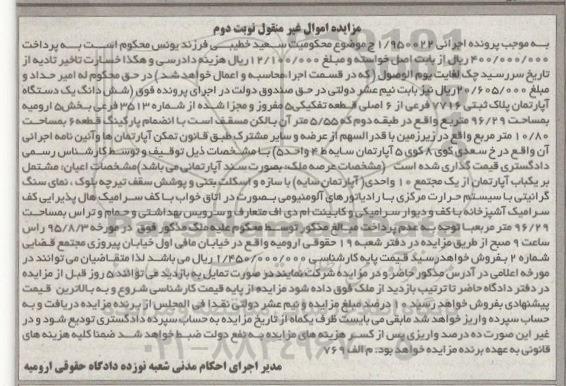 مزایده اموال غیر منقول نوبت دوم
به موجب پرونده اجرائی ۱/۹۵۰۰۲۲ ج موضوع محکومیت سعید خطیبی فرزند یونس محکوم است به پرداخت
۴۰۰/۰۰۰/۰۰۰ ریال از بابت اصل خواسته و مبلغ ۱۲/۱۰۰/۰۰۰ ریال هزینه دادرسی و هکذا خسارت تاخیر تادیه از
تاریخ سررسید چک لغایت یوم الوصول (که در قسمت اجرا محاسبه و اعمال خواهد شد.) در حق محکوم له امیر حداد و
مبلغ ۲۰/۶۰۵/۰۰۰ ریال نیز بابت نیم عشر دولتی در حق صندوق دولت در اجرای پرونده فوق (شش دانگ یک دستگاه
آپارتمان پلاک ثبتی ۷۷۱۶ فرعی از ۶ اصلی قطعه تفکیکی ۵ مفروز و مجزا شده از شماره ۳۵۱۳ فرعی بخش ۵ ارومیه
بمساحت ۹۶/۲۹ متر مربع واقع در طبقه دوم که ۵/۵۵ متر آن بالکن مسقف است با انضمام پارکینگ قطعه ۶ بمساحت
۱۰/۸۰ متر مربع واقع در زیرزمین با قدر السهم از عرصه و سایر مشترک طبق قانون تملک آپارتمان ها و آئین نامه اجرائی
آن واقع در خ سعدی کوی ۸ کوی ۵ آپارتمان سایه ط ۴ واحد ۵) با مشخصات ذیل توقیف و توسط کارشناس رسمی
دادگستری قیمت گذاری شده است (مشخصات عرصه ملک، بصورت سند آپارتمانی می باشد) مشخصات اعیان: مشتمل
بر یکباب آپارتمان از یک مجتمع ۱۰ واحدی (آپارتمان سایه) با سازه و اسکلت بتنی و پوشش سقف تیرچه بلوک، نمای سنگ
گرانیتی با سیستم حرارت مرکزی با رادیاتورهای آلومنیومی بصورت در اتاق خواب با کف سرامیک هال پذیرایی کف
سرامیک آشپزخانه با کف و دیوار سرامیکی و کابینت ام دی اف متعارف و سرویس بهداشتی و حمام و تراس بمساحت
۹۶/۲۹ متر مربع با توجه به عدم پرداخت مبالغ مذکور توسط محکوم علیه ملک مذکور فوق در مورخه ۹۵/۸/۳ راس
ساعت ۹ صبح از طریق مزایده در دفتر شعبه ۱۹ حقوقی ارومیه واقع در خیابان مافی اول خیابان پیروزی مجتمع قضایی
شماره ۲ بفروش خواهد رسید قیمت پایه کارشناسی ۱/۴۵۰/۰۰۰/۰۰۰ ریال می باشد لذا متقاضیان می توانند در
مورخه اعلامی در آدرس مذکور حاضر و در مزایده شرکت نمایند در صورت تمایل به بازدید می توانند ۵ روز قبل از مزایده
در دفتر دادگاه حاضر تا ترتیب بازدید از ملک فوق داده شود مزایده از پایه قیمت کارشناسی شروع و به بالاترین قیمت
پیشنهادی بفروش خواهد رسید ۱۰ درصد مبلغ مزایده و نیم عشر دولتی نقدا فی المجلس از برنده مزایده دریافت و به
حساب سپرده واریز خواهد شد مابقی می بایست ظرف یکماه از تاریخ مزایده به حساب سپرده دادگستری تودیع شود و در
غیر این صورت ده درصد واریزی پس از کسر هزینه های مزایده به نفع دولت ضبط خواهد شد ضمنا کلیه هزینه های
قانونی به عهده برنده مزایده خواهد بود. م الف ۷۶۹
مدیر اجرای احکام مدنی شعبه نوزده دادگاه حقوقی ارومیه